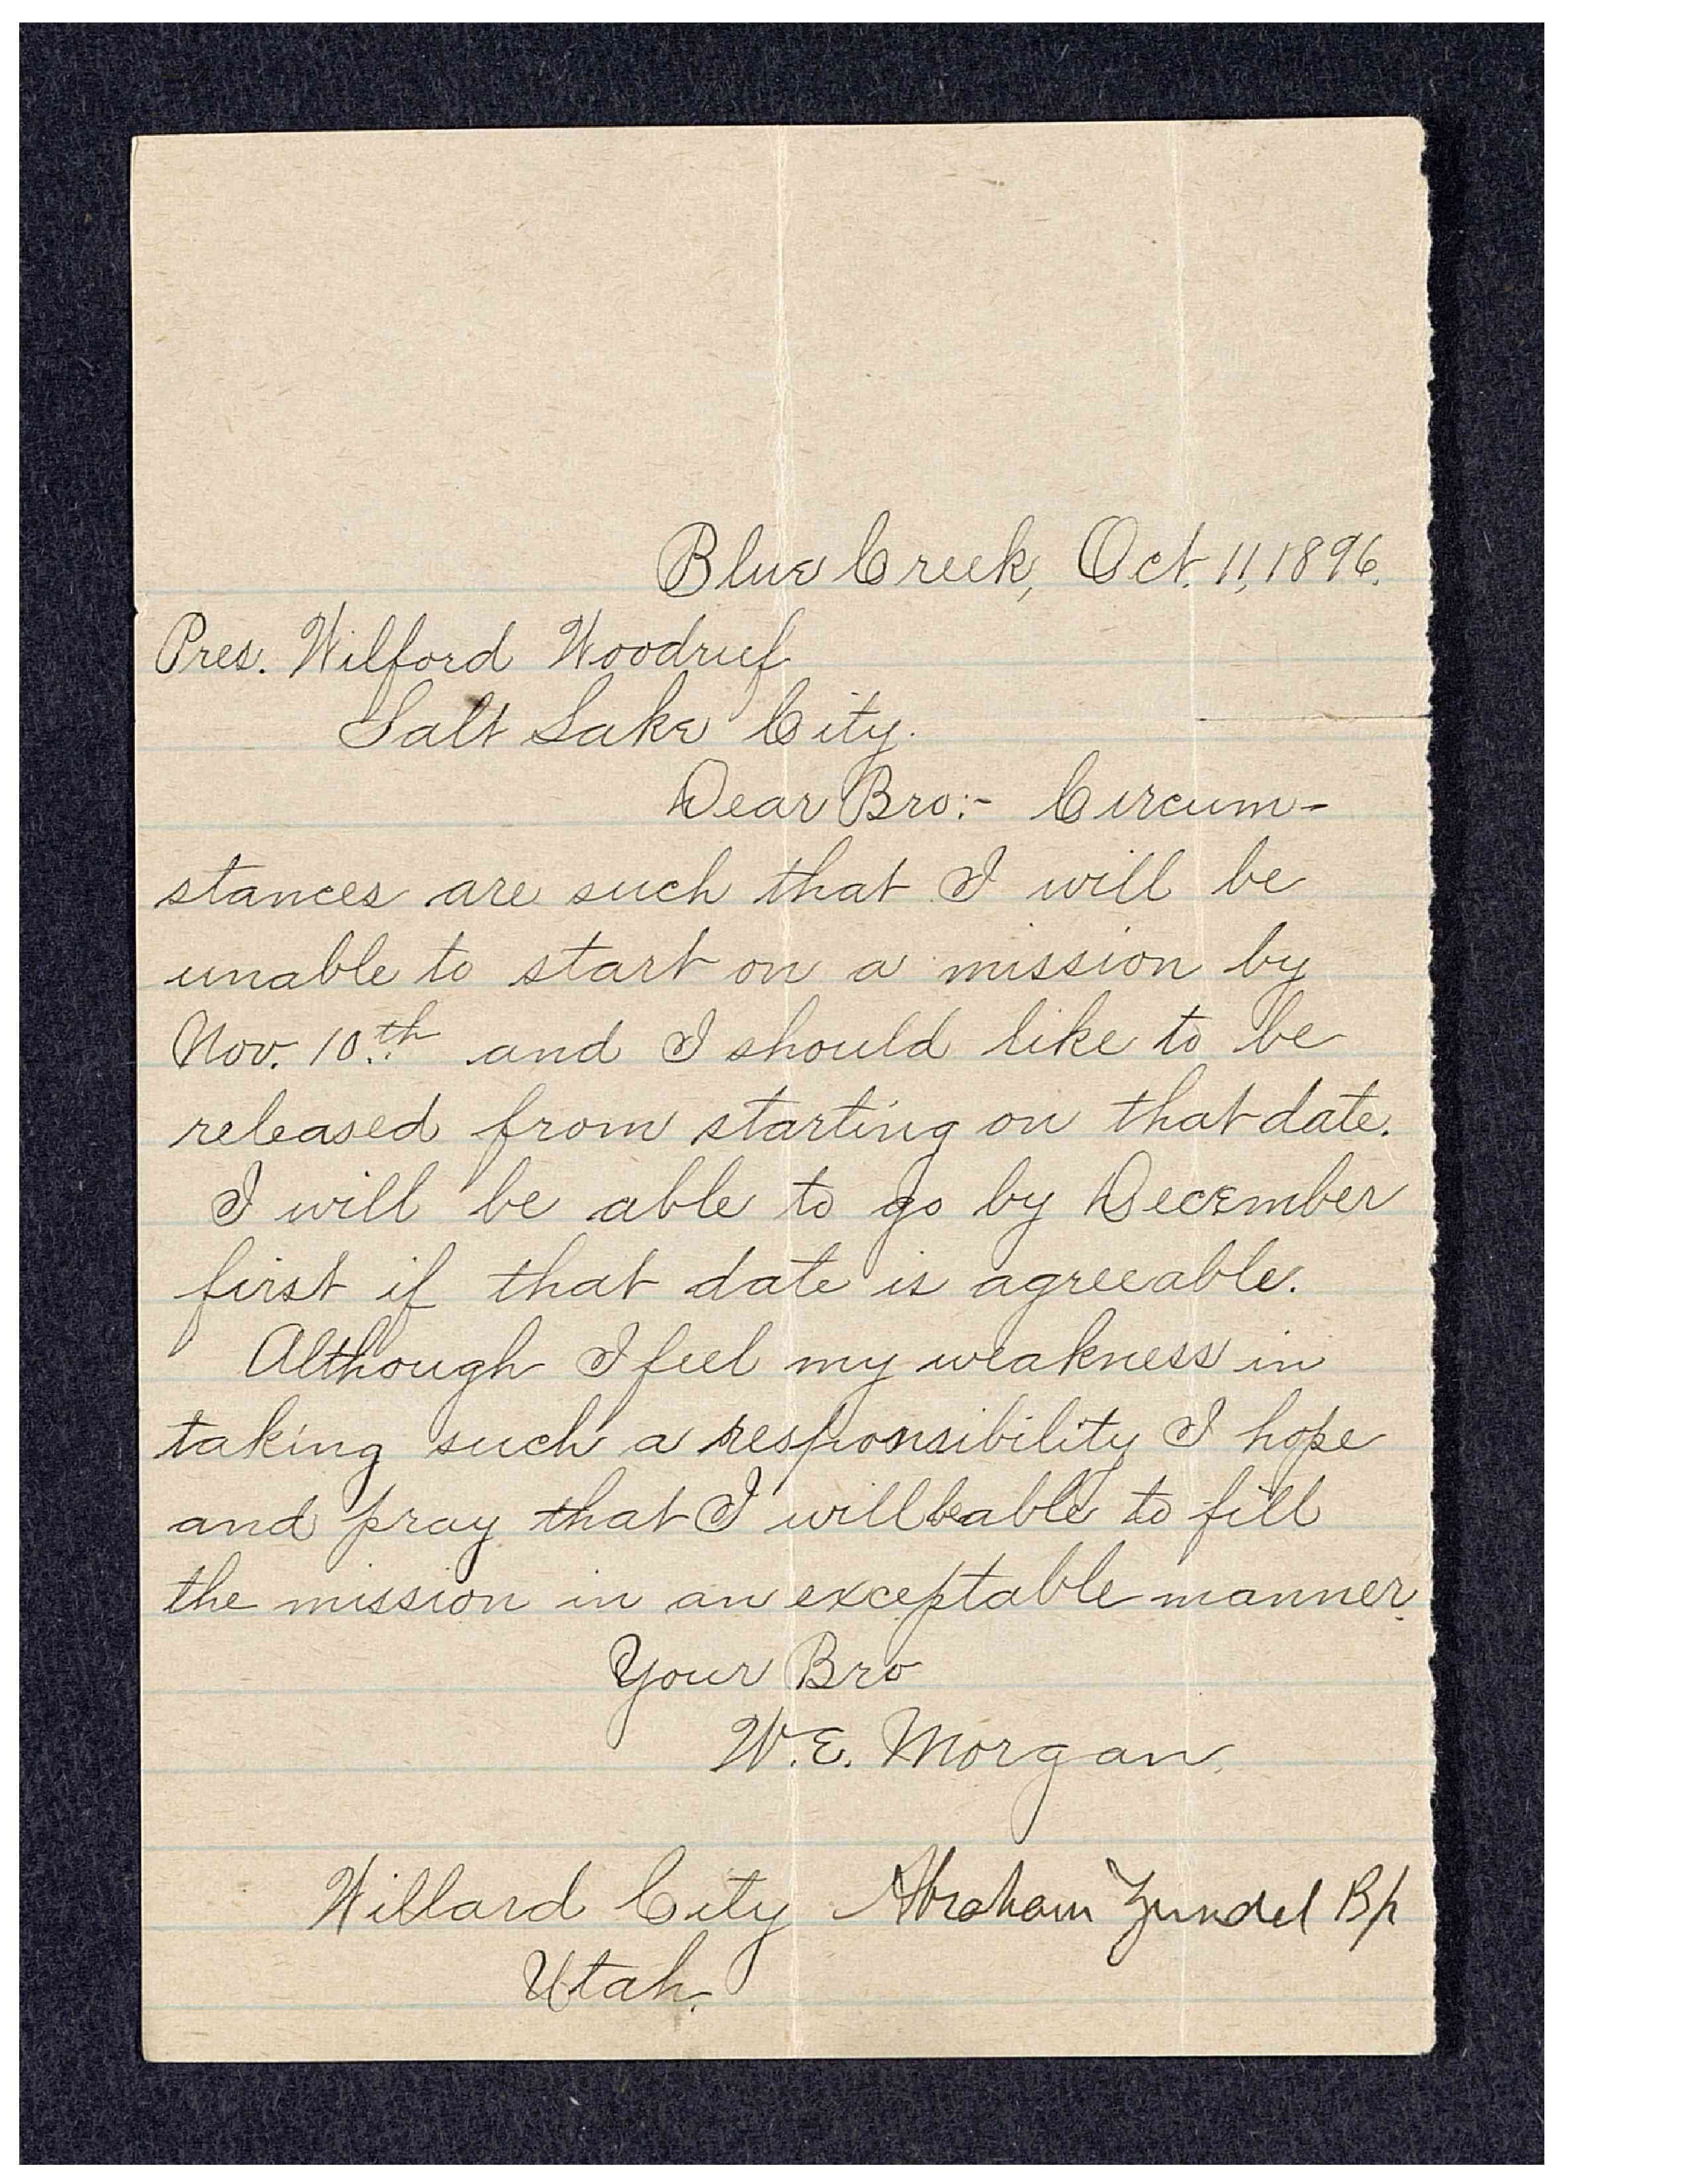 Blue Creek, Oct. 11, 1896.
Pres. Wilford Woodruf
Salt Lake City.
Dear Bro:- Circum-
stances are such that I will be
unable to start on a mission by
Nov. 10th and I should like to be
released from starting on that date.
I will be able to go by December
first if that date is agreeable.
Although I feel my weakness in
taking such a responsibility I hope
and pray that I will be able to fill
the mission in an exceptable manner.
Your Bro
W.E. Morgan.
Willard City Abraham Zundel Bp
Utah.